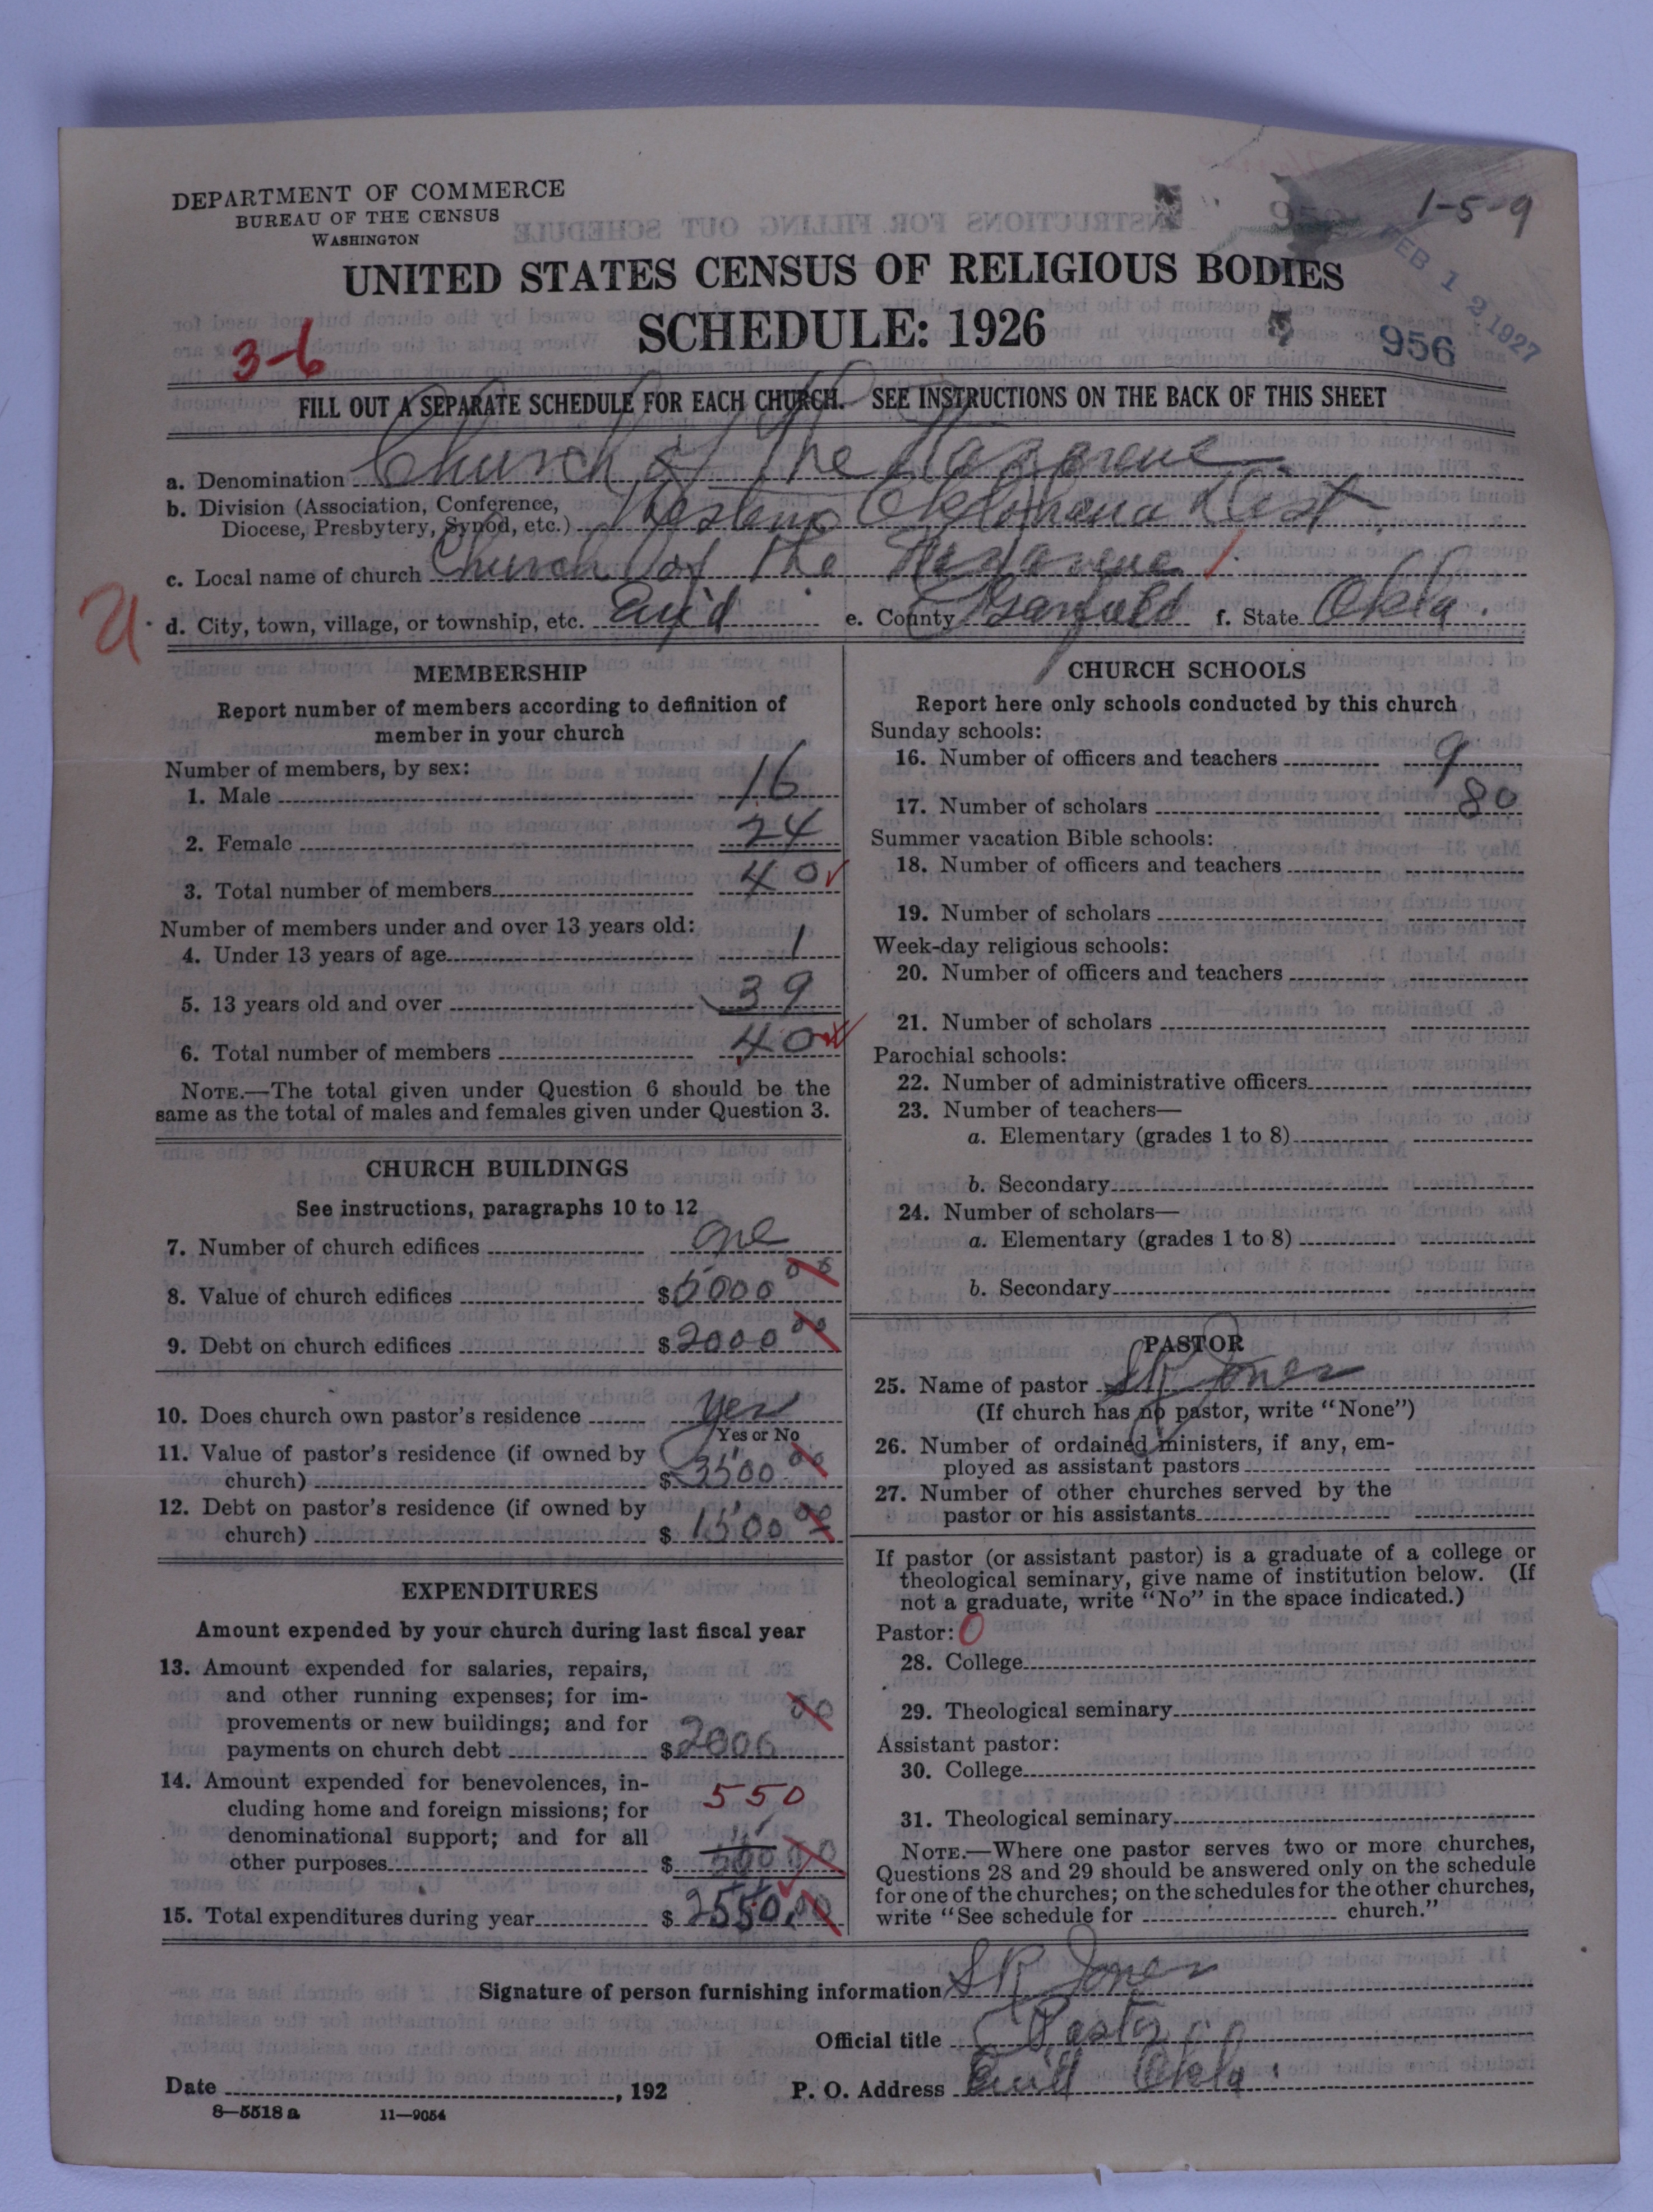 DEPARTMENT OF COMMERCE
BUREAU OF THE CENSUS
WASHINGTON
1-5-9
UNITED STATES CENSUS OF RELIGIOUS BODIES
SCHEDULE: 1926
FEB 12 1927
956
3-6
FILL OUT A SEPARATE SCHEDULE FOR EACH CHURCH. SEE INSTRUCTIONS ON THE BACK OF THIS SHEET
a. Denomination Church of The Nazarene
b. Division (Association, Conference,
Diocese, Presbytery, Synod, etc.) Western Oklahoma Dist.
c. Local name of church Church of The Nazarene
d. City, town, village, or township, etc. Enid e. County Garfield f. State Okla.
MEMBERSHIP
Report number of members according to definition of
member in your church
Number of members, by sex:
1. Male 16
2. Female 24
3. Total number of members 40
Number of members under and over 13 years old:
4. Under 13 years of age 1
5. 13 years old and over 39
6. Total number of members 40
NOTE.—The total given under Question 6 should be the
same as the total of males and females given under Question 3.
CHURCH BUILDINGS
See instructions, paragraphs 10 to 12
7. Number of church edifices one
8. Value of church edifices $5000 00
9. Debt on church edifices $2000 00
10. Does church own pastor's residence yes
Yes or No
11. Value of pastor's residence (if owned by
church) $3500 00
12. Debt on pastor's residence (if owned by
church) $1500 00
EXPENDITURES
Amount expended by your church during last fiscal year
13. Amount expended for salaries, repairs,
and other running expenses; for im-
provements or new buildings; and for
payments on church debt $2000 00
14. Amount expended for benevolences, in- 550
cluding home and foreign missions; for
denominational support; and for all
other purposes $ 00
15. Total expenditures during year $2550.00
CHURCH SCHOOLS
Report here only schools conducted by this church
Sunday schools:
16. Number of officers and teachers 9
17. Number of scholars 80
Summer vacation Bible schools:
18. Number of officers and teachers
19. Number of scholars
Week-day religious schools:
20. Number of officers and teachers
21. Number of scholars
Parochial schools:
22. Number of administrative officers
23. Number of teachers—
a. Elementary (grades 1 to 8)
b. Secondary
24. Number of scholars—
a. Elementary (grades 1 to 8)
b. Secondary
PASTOR
25. Name of pastor S R Jones
(If church has no pastor, write "None")
26. Number of ordained ministers, if any, em-
ployed as assistant pastors
27. Number of other churches served by the
pastor or his assistants
If pastor (or assistant pastor) is a graduate of a college or
theological seminary, give name of institution below. (If
not a graduate, write "No" in the space indicated.)
Pastor: 0
28. College
29. Theological seminary
Assistant pastor:
30. College
31. Theological seminary
NOTE.—Where one pastor serves two or more churches,
Questions 28 and 29 should be answered only on the schedule
for one of the churches; on the schedules for the other churches,
write "See schedule for church."
Signature of person furnishing information S R Jones
Official title Pastor
Date , 192 P. O. Address Enid Okla.
8—5518 a 11—9054